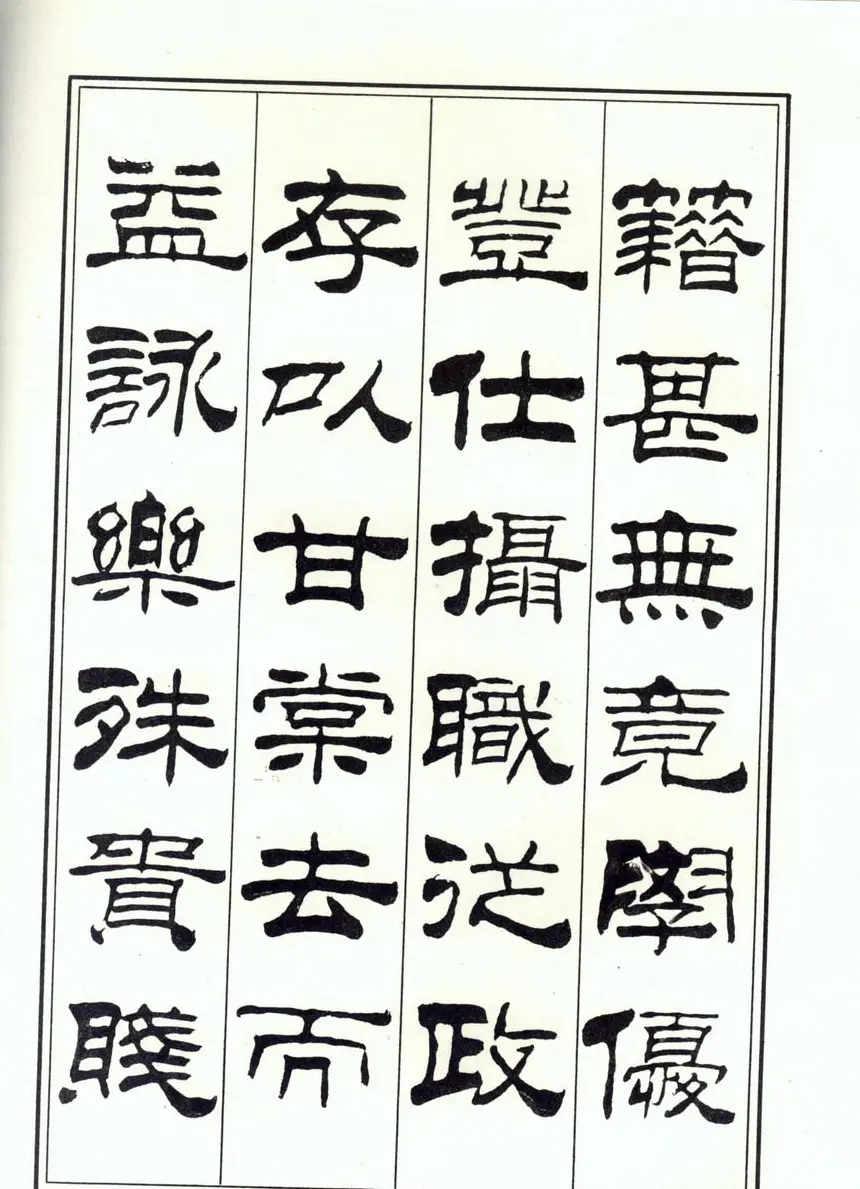 籍甚無竟學優
登仕攝職從政
存以甘棠去而
益詠樂殊貴賤